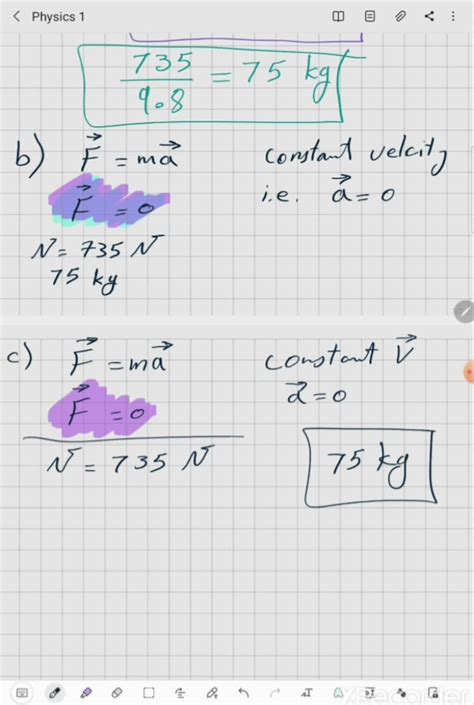 Physics 1
735
9.8
= 75 kg
b) F⃗ = ma⃗ constant velcity
F⃗ = 0 i.e. a⃗ = 0
N = 735 N
75 kg
c) F⃗ = ma⃗ constant V⃗
F⃗ = 0 a⃗ = 0
N = 735 N 75 kg
XRecorder